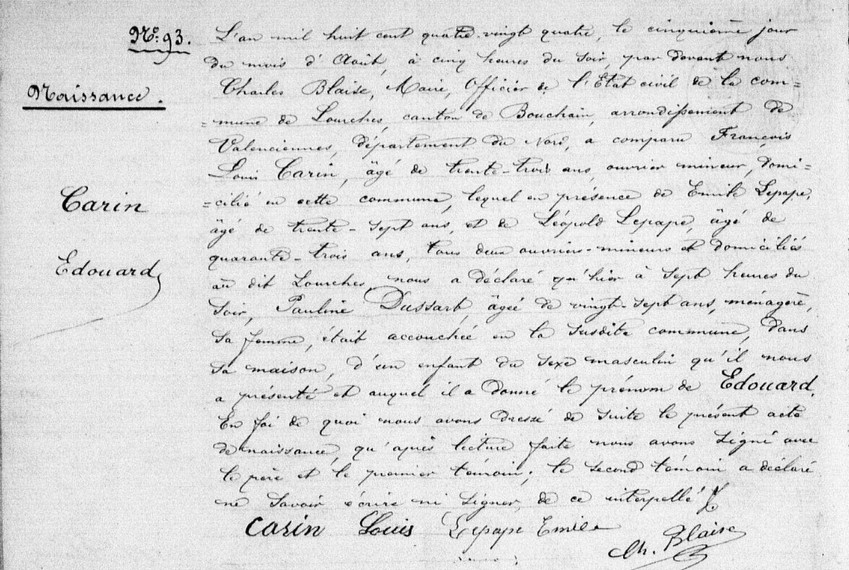 N.o 93.
Naissance.
Carin
Edouard
L'an mil huit cent quatre-vingt quatre, le cinquième jour
du mois d'Août, à cinq heures du soir, par devant nous
Charles Blaise, Maire, Officier de l'Etat civil de la com-
-mune de Lourches, canton de Bouchain, arrondissement de
Valenciennes, département du Nord, a comparu François
Louis Carin, âgé de trente-trois ans, ouvrier mineur, domi-
-cilié en cette commune, lequel en présence de Emile Lepape,
âgé de trente-sept ans, et de Léopold Lepape, âgé de
quarante-trois ans, tous deux ouvriers-mineurs et domiciliés
au dit Lourches, nous a déclaré qu'hier à sept heures du
soir, Pauline Dussart, âgée de vingt-sept ans, ménagère,
sa femme, était accouchée en la susdite commune, dans
sa maison, d'un enfant du sexe masculin qu'il nous
a présenté et auquel il a donné le prénom de Edouard.
En foi de quoi nous avons dressé de suite le présent acte
de naissance, qu'après lecture faite nous avons signé avec
le père et le premier témoin; le second témoin a déclaré
ne savoir écrire ni signer, de ce interpellé
Carin Louis Lepape Emile
Ch. Blaise